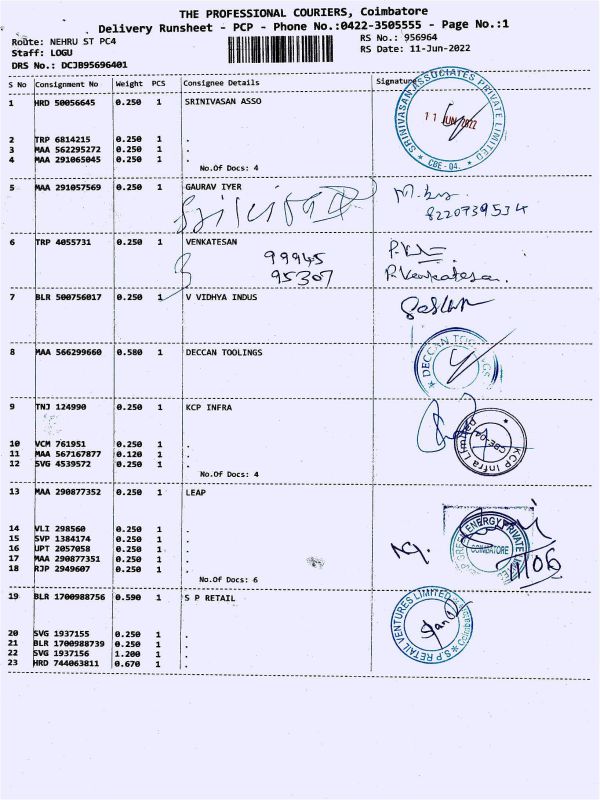 THE PROFESSIONAL COURIERS, Coimbatore
Delivery Runsheet - PCP - Phone No.:0422-3505555 - Page No.:1
Route: NEHRU ST PC4 RS No.: 956964
Staff: LOGU RS Date: 11-Jun-2022
DRS No.: DCJB95696401
S No Consignment No Weight PCS Consignee Details Signature
1 HRD 50056645 0.250 1 SRINIVASAN ASSO
SRINIVASAN ASSOCIATES PRIVATE LIMITED
11 JUN 2022
* CBE-04. *
2 TRP 6814215 0.250 1 .
3 MAA 562295272 0.250 1 .
4 MAA 291065045 0.250 1 .
No.Of Docs: 4
5 MAA 291057569 0.250 1 GAURAV IYER
8220739534
6 TRP 4055731 0.250 1 VENKATESAN
99945
95307
P.Venkatesan.
7 BLR 500756017 0.250 1 V VIDHYA INDUS
8 MAA 566299660 0.580 1 DECCAN TOOLINGS
* DECCAN TOOLINGS *
9 TNJ 124990 0.250 1 KCP INFRA
KCP Infra Limited
CBE-04
10 VCM 761951 0.250 1 .
11 MAA 567167877 0.120 1 .
12 SVG 4539572 0.250 1 .
No.Of Docs: 4
13 MAA 290877352 0.250 1 LEAP
GREEN ENERGY PRIVATE
COIMBATORE
14 VLI 298560 0.250 1 .
15 SVP 1384174 0.250 1 .
16 UPT 2057058 0.250 1 .
17 MAA 290877351 0.250 1 .
18 RJP 2949607 0.250 1 .
No.Of Docs: 6
19 BLR 1700988756 0.590 1 S P RETAIL
* S.P RETAIL VENTURES LIMITED *
Coimbatore
20 SVG 1937155 0.250 1 .
21 BLR 1700988739 0.250 1 .
22 SVG 1937156 1.200 1 .
23 HRD 744063811 0.670 1 .